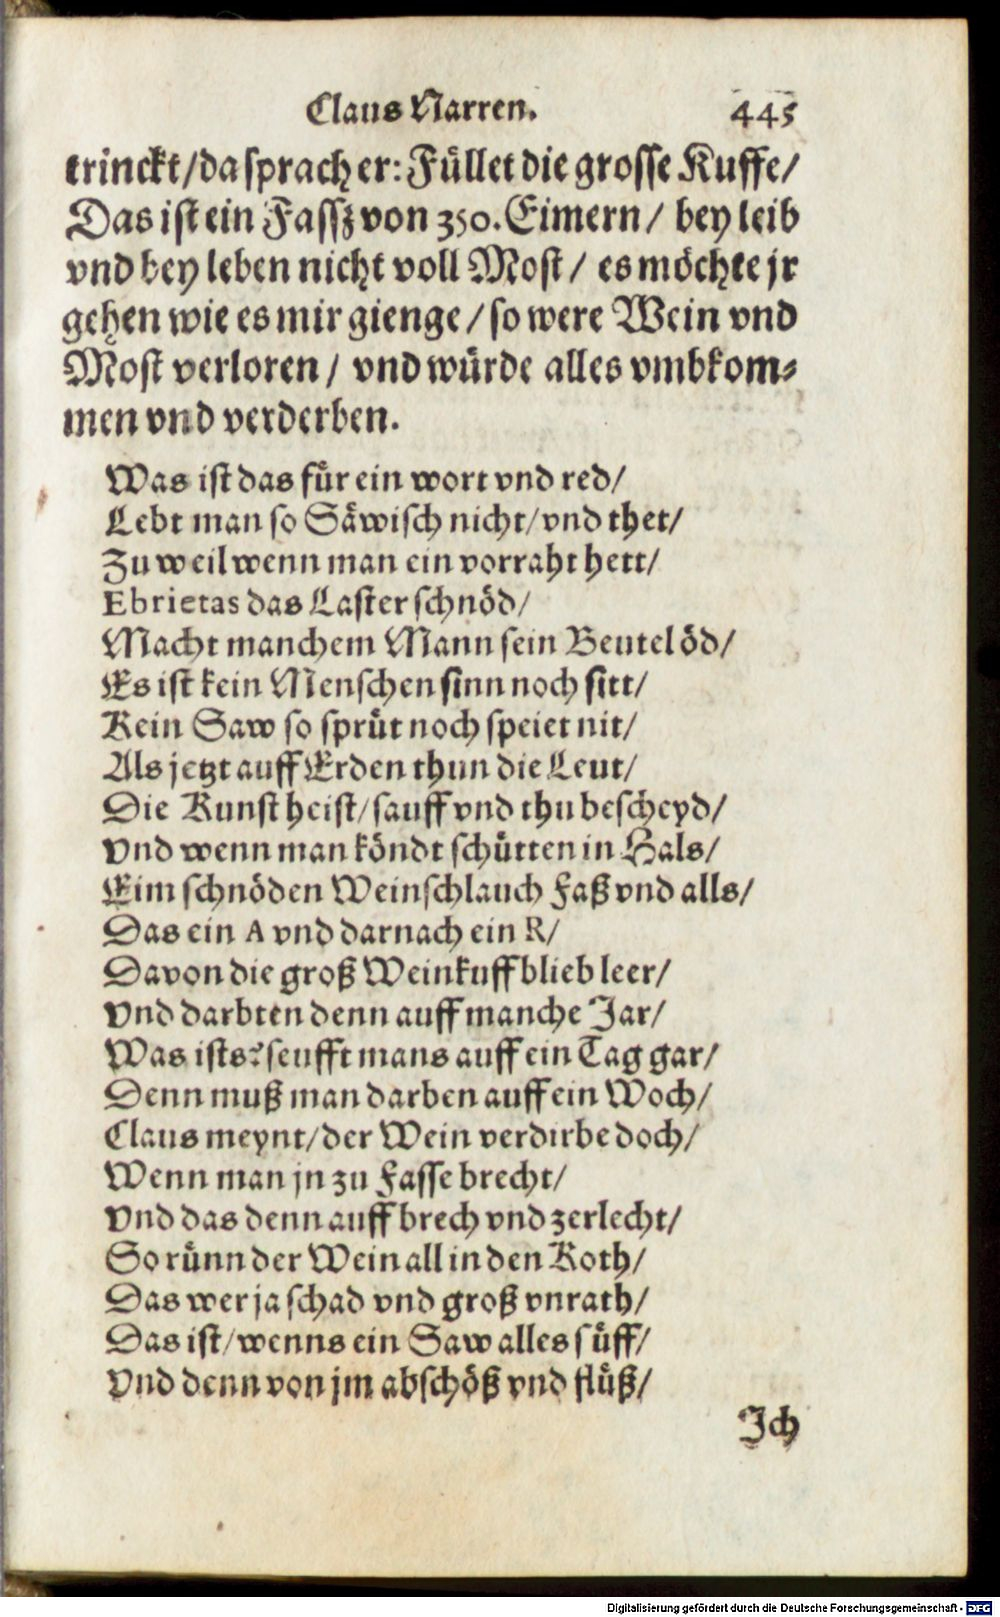 Claus Narren. 445
trinckt/da sprach er: Füllet die grosse Kuffe/
Das ist ein Fassz von 350. Eimern/ bey leib
vnd bey leben nicht voll Most/ es möchte jr
gehen wie es mir gienge/ so were Wein vnd
Most verloren/ vnd würde alles vmbkom-
men vnd verderben.
Was ist das für ein wort vnd red/
Lebt man so Säwisch nicht/vnd thet/
Zu weil wenn man ein vorraht hett/
Ebrietas das Laster schnöd/
Macht manchem Mann sein Beutel öd/
Es ist kein Menschen sinn noch sitt/
Kein Saw so sprüt noch speiet nit/
Als jetzt auff Erden thun die Leut/
Die Kunst heist/sauff vnd thu bescheyd/
Vnd wenn man köndt schütten in Hals/
Eim schnöden Weinschlauch Faß vnd alls/
Das ein A vnd darnach ein R/
Davon die groß Weinkuff blieb leer/
Vnd darbten denn auff manche Jar/
Was ists? seufft mans auff ein Tag gar/
Denn muß man darben auff ein Woch/
Claus meynt/der Wein verdirbe doch/
Wenn man jn zu Fasse brecht/
Vnd das denn auff brech vnd zerlecht/
So rünn der Wein all in den Koth/
Das wer ja schad vnd groß vnrath/
Das ist/wenns ein Saw alles süff/
Vnd denn von jm abschöß vnd flüß/
Jch
Digitalisierung gefördert durch die Deutsche Forschungsgemeinschaft - DFG